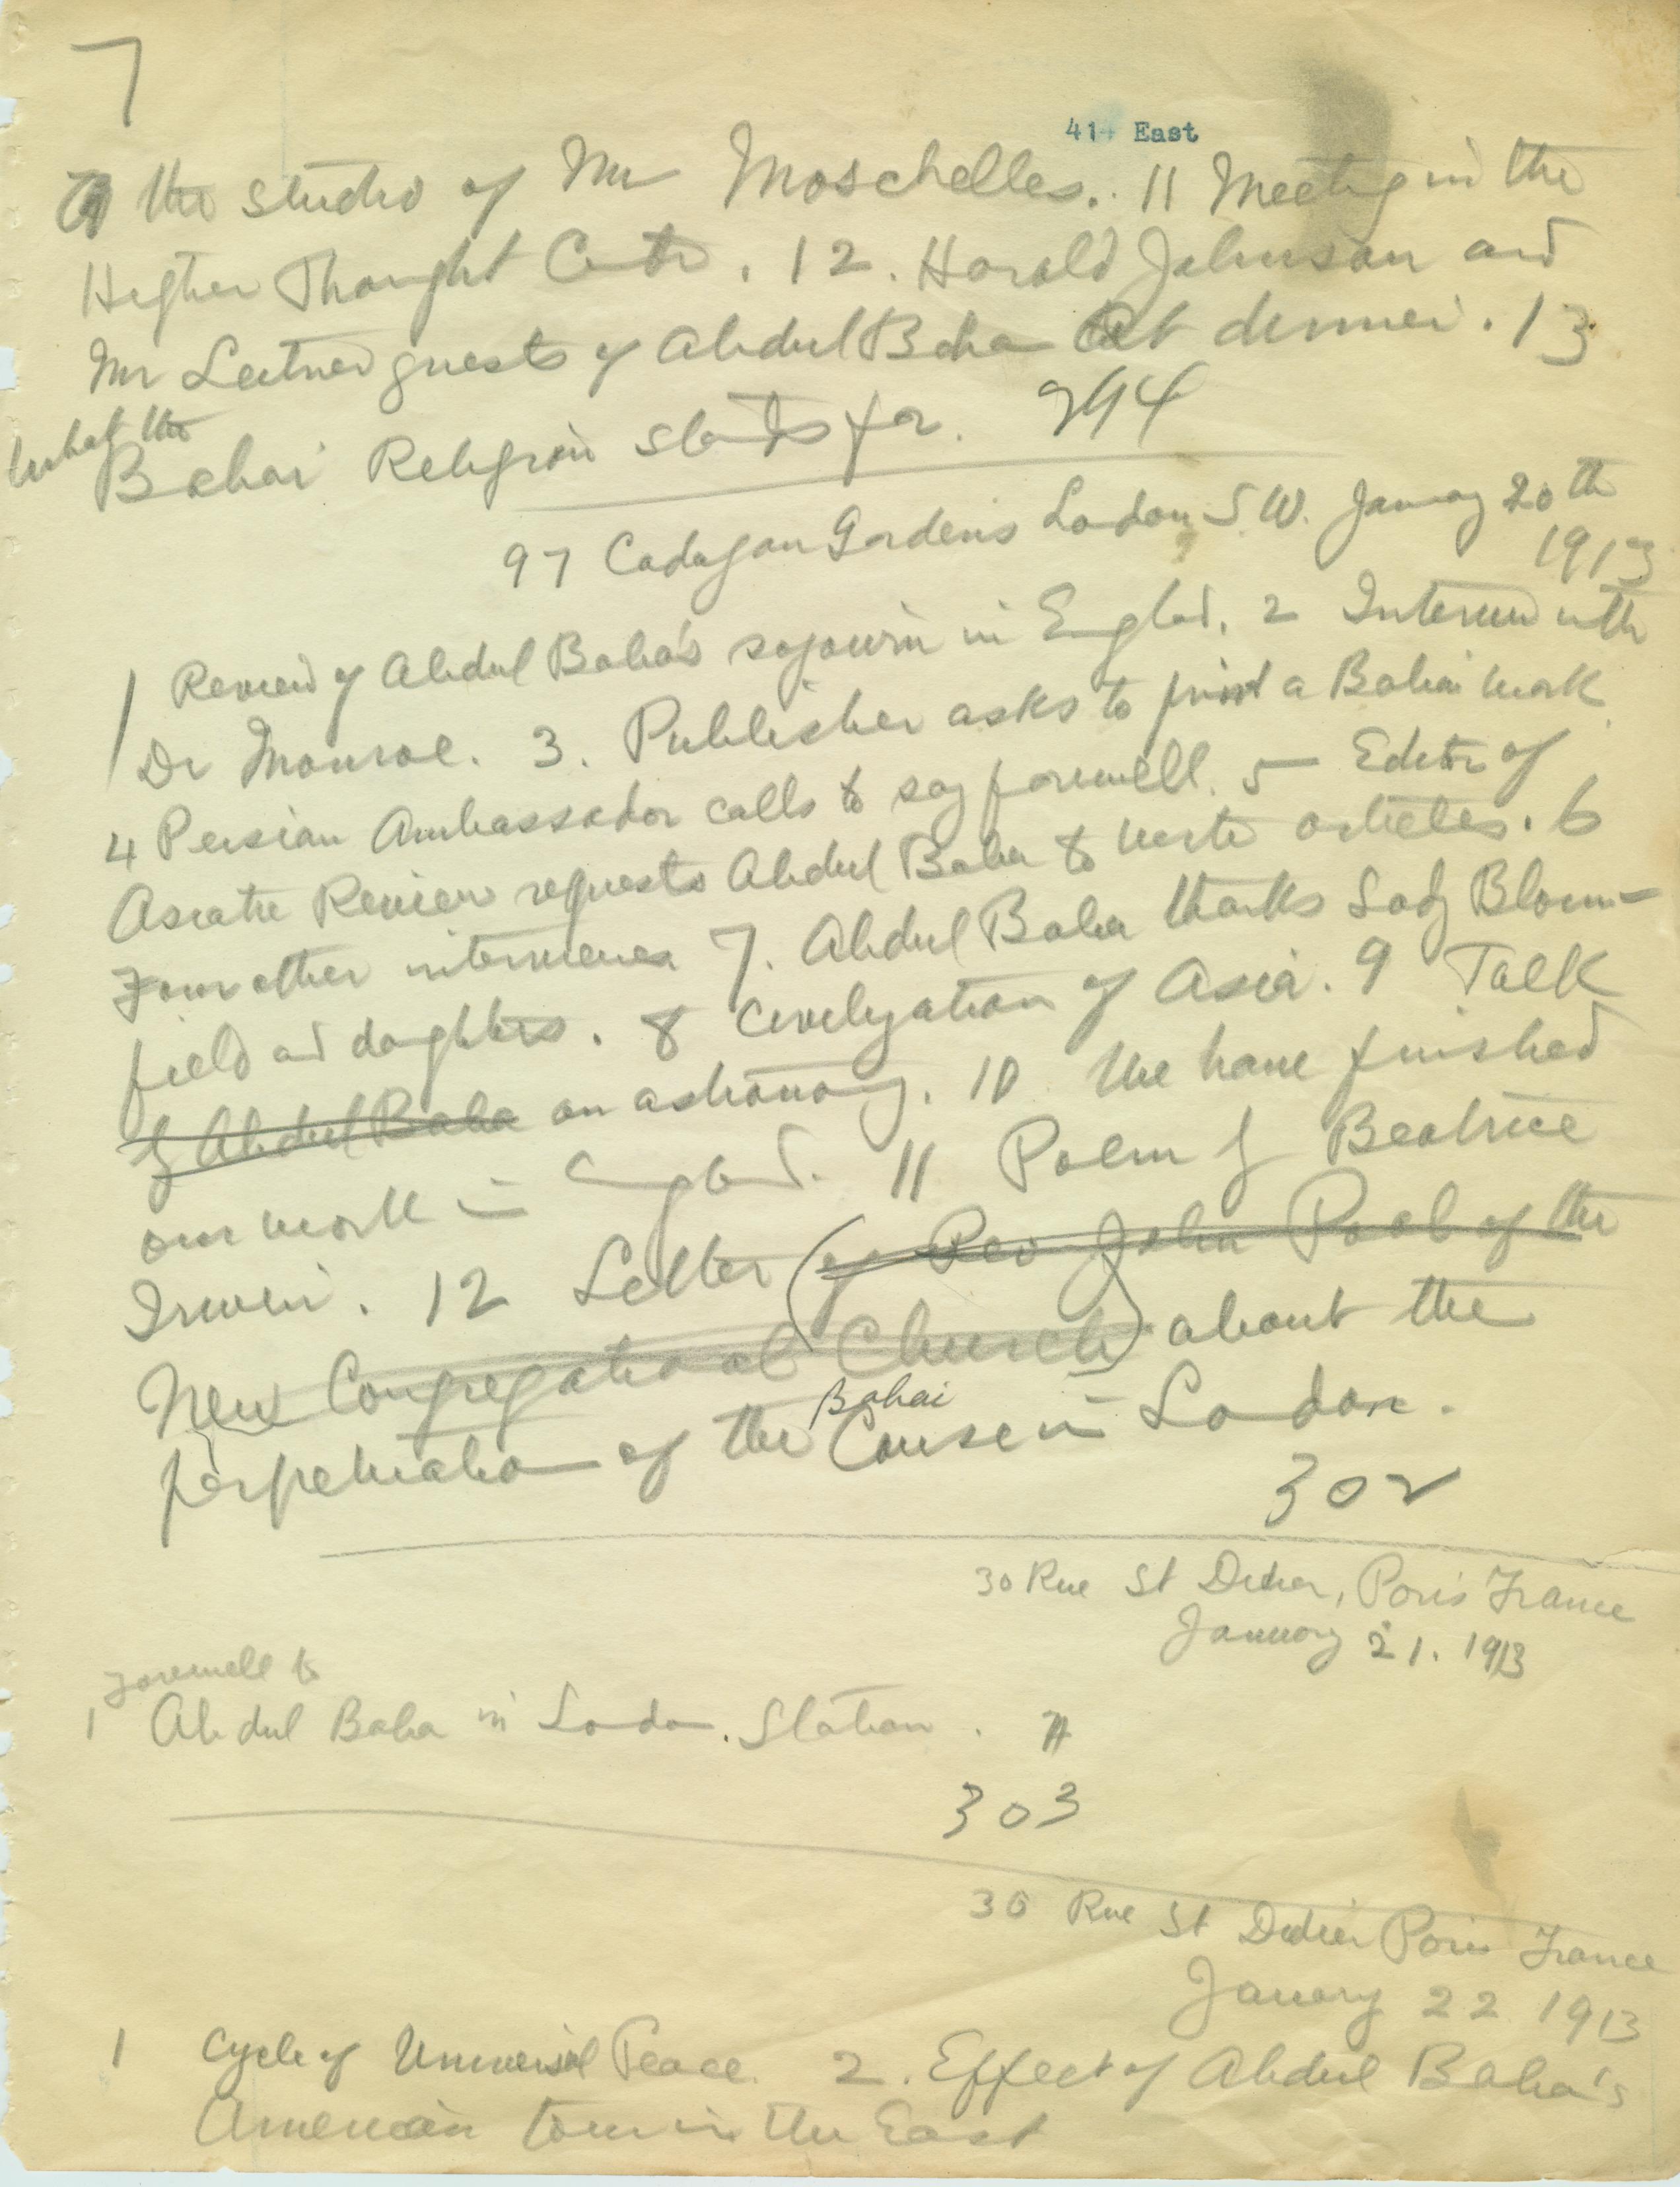 7
41 East
the studio of Mr Moschelles. 11 Meeting in the
Higher Thought Centre. 12. Harold Johnson and
Mr Leitner guests of Abdul Baha at dinner. 13
What the
Bahai Religion stands for. 294
97 Cadogan Gardens London S.W. January 20th
1913
1 Review of Abdul Baha's sojourn in England. 2 Interview with
Dr Monroe. 3. Publisher asks to print a Bahai work
4 Persian Ambassador calls to say farewell. 5 Editor of
Asiatic Review requests Abdul Baha to write articles. 6
Four other interviews 7. Abdul Baha thanks Lady Blom-
field and daughters. 8 Civilization of Asia. 9 Talk
of Abdul Baha on astronomy. 10 We have finished
our work in England. 11 Poem of Beatrice
Irwin. 12 Letter (of Rev John Pool of the
New Congregational Church) about the
Bahai
perpetuation of the Cause in London.
302
30 Rue St Didier, Paris France
January 21. 1913
Farewell to
1 Abdul Baha in London. Station.
303
30 Rue St Didier Paris France
January 22 1913
1 Cycle of Universal Peace. 2. Effect of Abdul Baha's
American tour in the East